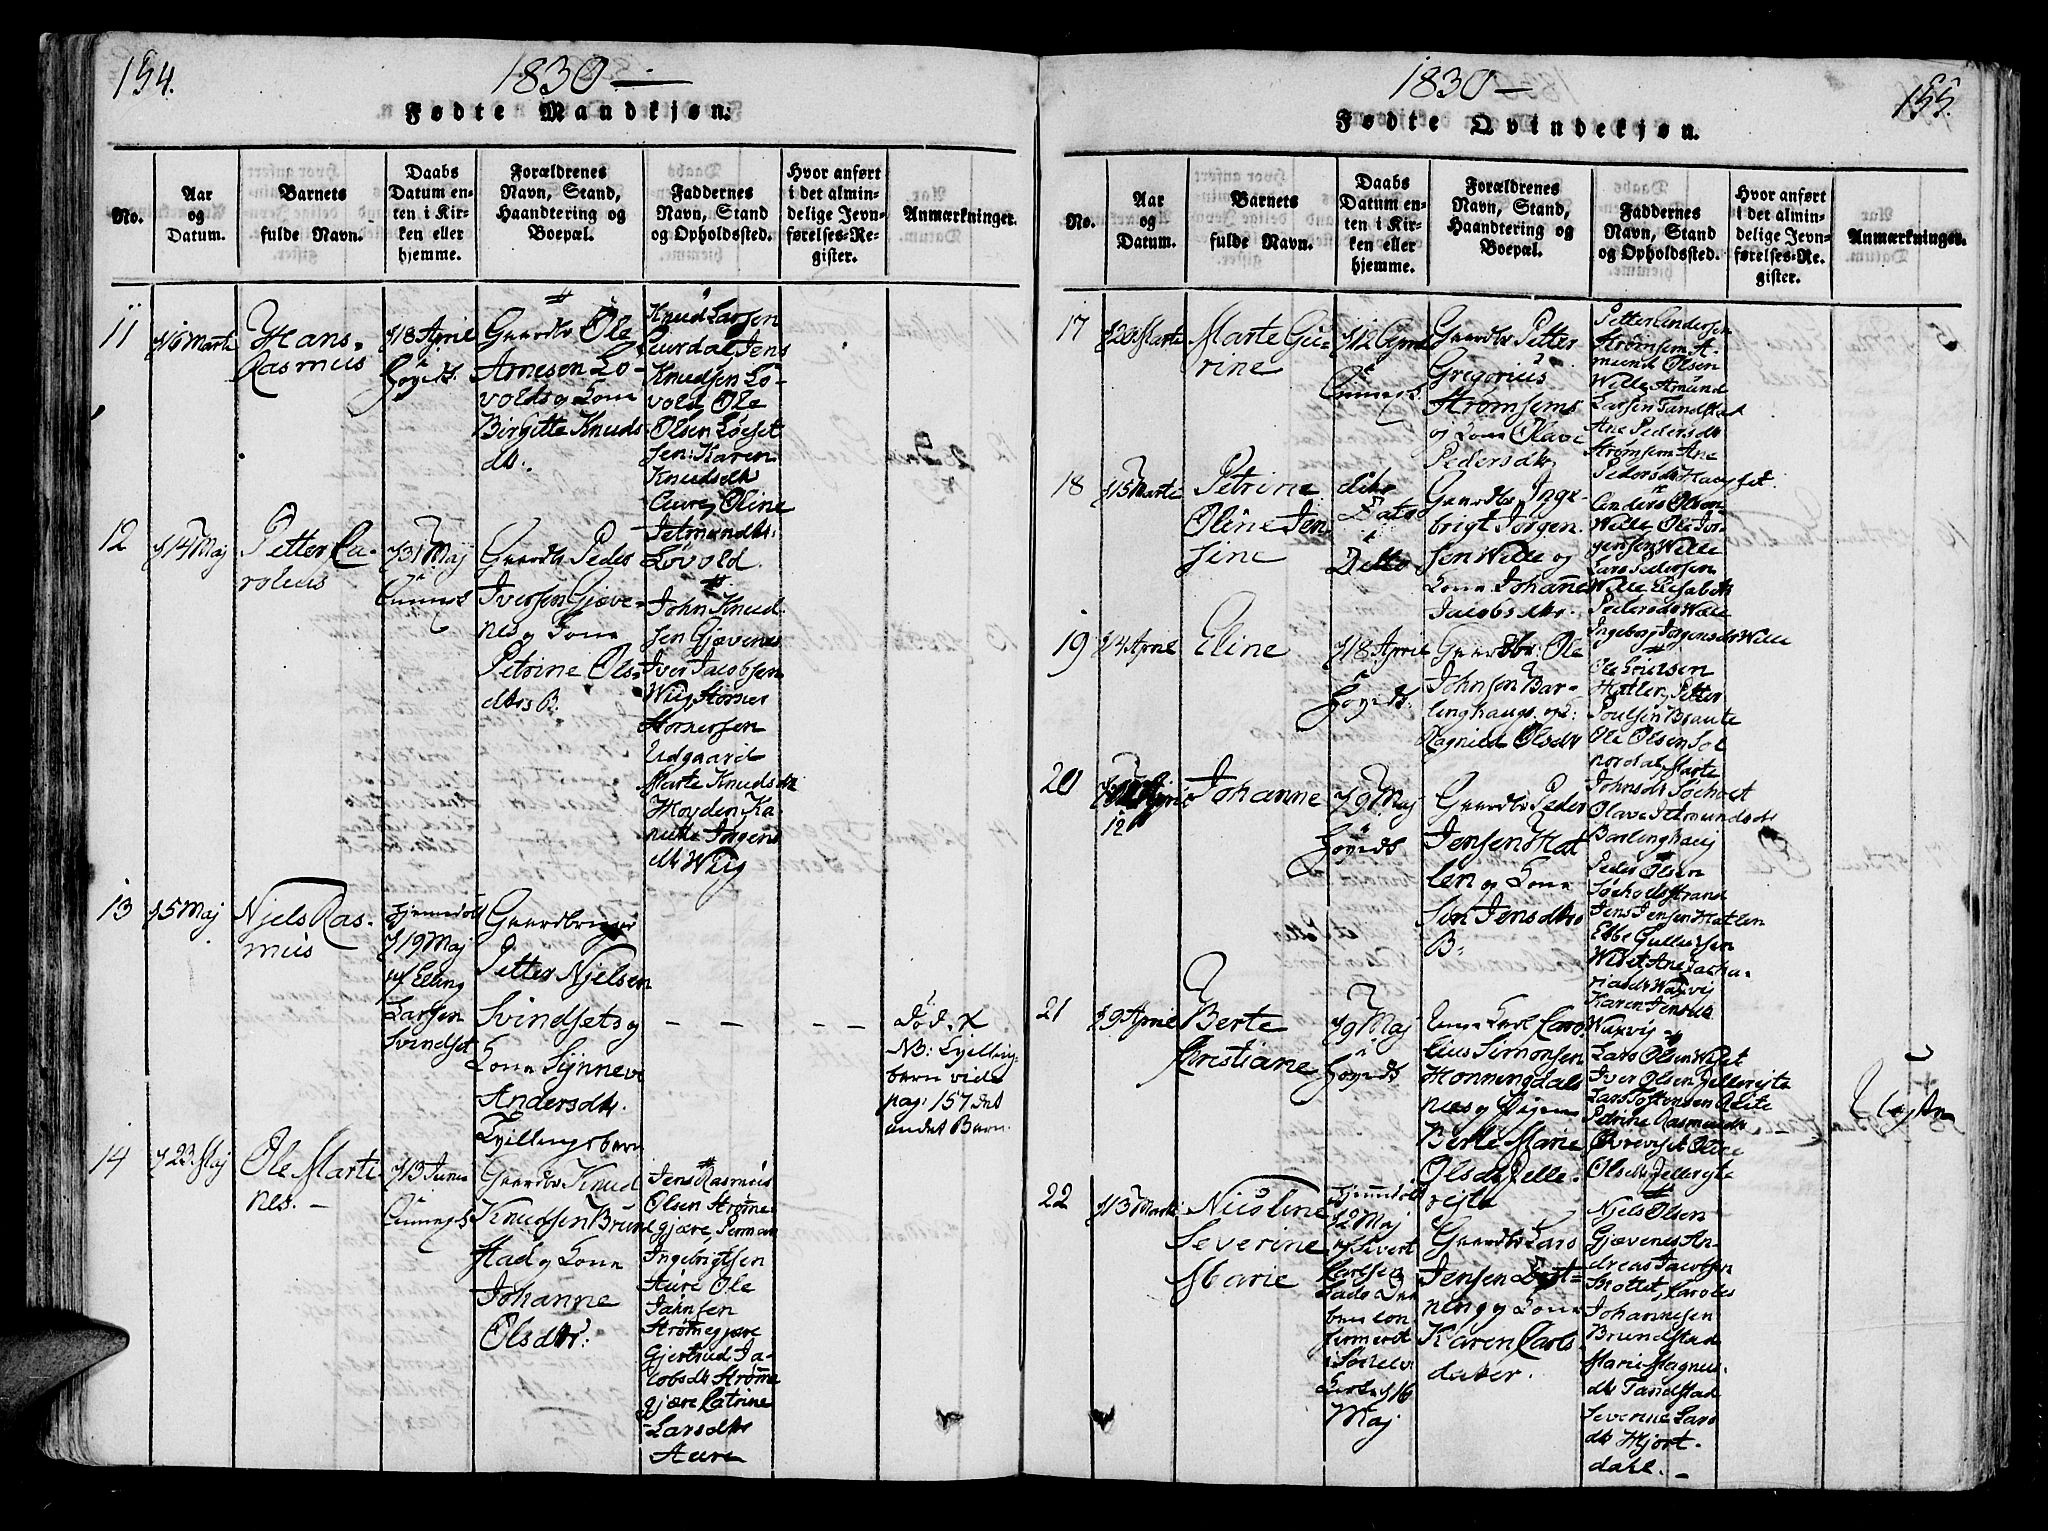 154.
1830 —
Fødte Mandkjøn.
No.
Aar
og
Datum.
Barnets
fulde Navn.
Daabs
Datum en-
ten i Kir-
ken eller
hjemme.
Forældrenes
Navn, Stand,
Haandtering og
Boepæl.
Faddernes
Navn, Stand
og Opholdssted.
Hvor anført
i det almin-
delige Jevn-
førelses-Re-
gister.
Anmærkninger.
11
16 Marts
Hans
Rasmus
18 April
Gaardbr Ole
Arnesen Lø-
vold og Kone
Birgitte Knuds
dtr.
Knud Larsen
Aurdal Jens
Knudsen Lø-
vold Ole
Olsen Løeset
Jen: Karen
Knudsdtr
Aure, Oline
Jetmundtr:
Løvold.
12
14 Maj
Petter Ca-
rolus
31 Maj
Gaardbr Peder
Iversen Gjæve-
nes og Kone
Petrine Ols-
dtr B.
John Knud-
sen Gjævenes
Iver Jacobsen
Wiig Stømer
Stomersen
Udgaard
Marte Knudsdtr
Høyden Ka-
nutte Jørgens
dtr Wiig
13
15 Maj
Njels Ras-
mus
Hjemmedøbt
19 Maj
af Elling
Larsen
Svindset
Gaardbruger
Petter Njelsen
Svindset og
Kone Synneve
Andersdtr.
Tvillingsbarn
— — — —
Død. X
NB: Tvilling-
barn vide
pag: 157 det
andet Barn.
14
23 Maj
Ole Marti
nes. —
13 Junii
Gaardbr Knud
Knudsen Brund
stad og Kone
Johanne
Olsdtr:
Jens Rasmus
Olsen Strømme-
gjære, Permand
Ingebrigtsen
Aure Ole
Jahnsen
Strømegjære
Gjertrud Ja-
cobsdtr Strømme
gjære Catrine
Larsdtr
Aure
155.
1830 —
Fødte Qvindekjøn.
No.
Aar
og
Datum.
Barnets
fulde Navn.
Daabs
Datum en-
ten i Kir-
ken eller
hjemme.
Forældrenes
Navn, Stand,
Haandtering og
Boepæl.
Faddernes
Navn, Stand
og Opholdssted.
Hvor anført
i det almin-
delige Jevn-
førelses-Re-
gister.
Anmærkninger.
17
20 Marts
Marte Gu-
rine
12 April
Gaardbr Petter
Gregorius
Strømsems
og Kone Olave
Pedersdtr
Petter Andersen
Strømsem A-
mund Olsen
Wille Amund
Larsen Tandstad
Ane Pedersdtr
Strømsem Ane
Pedersdtr Haugset.
18
15 Marts
Petrine
Oline Jen
sine
dito
Dato
i
Ditto
Gaardbr Inge-
brigt Jørgen-
sen Wille og
Kone Johanne
Jacobsdtr.
Anders Olsen
Wille Ole Jør-
gensen Wille
Lars Pedersen
Wille Elisabeth
Pedersdtr Wille
Ingeborg Jørgensdtr Wille
19
4 April
Eline
18 April
Gaardbr: Ole
Johnsen Bar-
linghaug og K:
Ragnild Olsdtr
Ole Ericksen
Hatlen, Petter
Poulsen Braute
Ole Olsen Sol
nordal, Marte
Johnsdtr Søeholt
Olave Jetmundsdtr
Barlinghaug
20
April
12
Johanne
9 Maj
Gaardbr Peder
Jensen Hat
len og Kone
Siri Jensdtr
B:
Peder Olsen
Søeholsstrand
Jens Jensen Hatlen
Ebbe Gullicksen
Widet Ane Zacha-
riasdtr Waxvig
Karen Jensdtr
Waxvig
21
9 April
Berte
Kristiane
9 Maj
Caro
lius Simonsen
Honningdals
nes og Pigen
Berte Marie
Olsdtr Pelle-
rejte
Lars Olsen Widet
Iver Olsen Pellerejte
Lars Tostensen Rejte
Petrine Rasmusdtr
Olsdtr Pellerejte
22
13 Marts
Nicoline
Severine
Marie
Hjemmedøbt
2 Maj
af Sivert
Carlsen
con
firmeret
i Søelev
Kirke d 16
Maj
Gaardbr Lars
Jensen
ning og Kone
Karen Carls
datter.
Njels Olsen
Gjævenes An-
dreas Jacobsen
Skottet, Karolus
Johannesen
Brundstad
Marie Magnus
dtr Tandstad
Severine Lars
dtr Hjort-
dahl. —